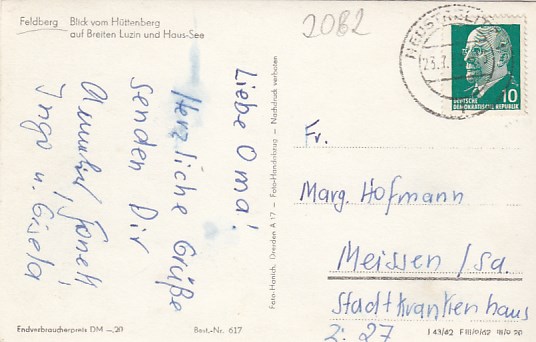 Feldberg Blick vom Hüttenberg
auf Breiten Luzin und Haus-See
2082
NEUSTRELITZ
23.7.
DEUTSCHE
DEMOKRATISCHE REPUBLIK
10
Liebe Oma!
Herzliche Grüße
senden Dir
Ingo u. Gisela
Fr.
Marg. Hofmann
Meissen / Sa.
Stadtkrankenhaus
Z: 27
Foto-Hanich, Dresden A 17 — Foto-Handabzug — Nachdruck verboten
Endverbraucherpreis DM —,20
Best.-Nr. 617
I 43/62 F III/9/62 III/9 20